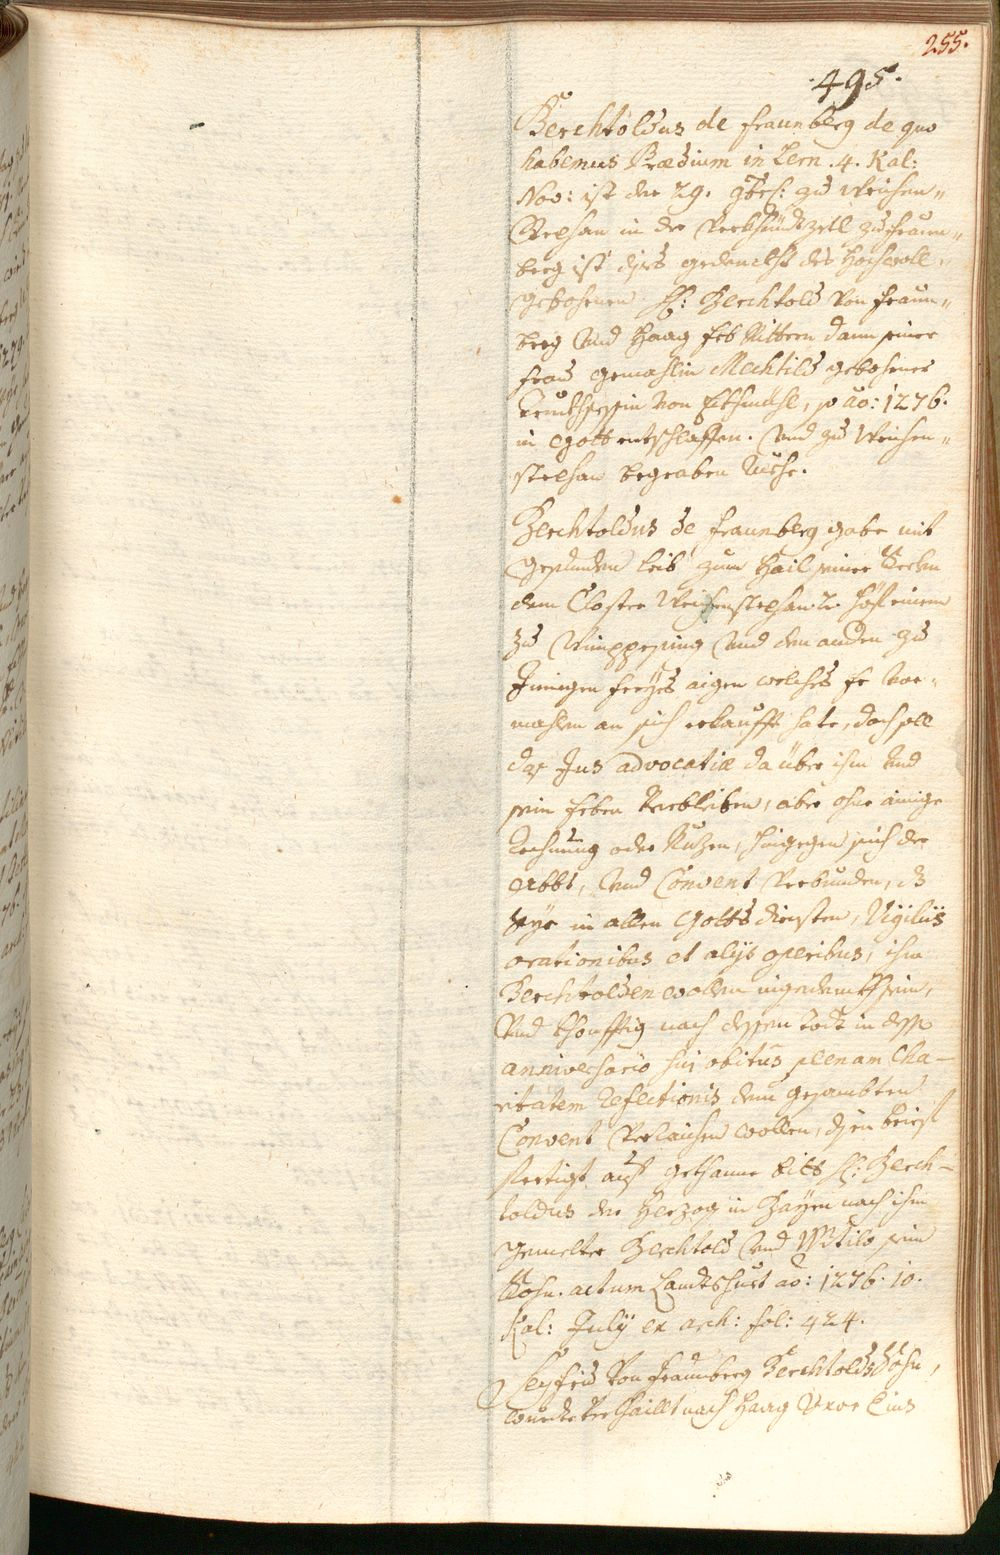 255.
495.
Berchtoldus de fraunberg de quo
habemus Prædium in Lern .4. Kal:
Nov: ist der 29. 8bris: zu Weichen-
Stephan in der Verkhündtzetl zu fraun-
berg ist dises gedenckht des Hochwoll-
gebohrnen H: Berchtold von fraun-
berg und Haag Erb Rittern dann seiner
frau gemahlin Mechtild gebohrner
Truchsessin von Ekhmühl, so ao: 1276.
in Gott entschlaffen. Und zu Weichen-
stephan begraben Ruehe.
Berchtoldus de fraunberg gabe mit
gesunden leib zum Hail seiner Seelen
dem Closter Weichenstephan 2. höf einem
zu Wimppesing und den andern zu
Inningen freyes aigen welches Er vor-
mahlen an sich erkaufft hate, doch soll
das Jus advocatiæ darüber ihm und
sein Erben verbleiben, aber ohne ainige
Rechnung oder Nuzen, hingegen sich der
Abbt, und Convent verbunden, ds
sye in allen Gottsdiensten, Vigiliis
orationibus et alys operibus, ihm
Berchtolden wollen ingedenckh sein,
und khonfftig nach dessen todt in desse
anniversario sui obitus plenam Cha-
ritatem Refectionis dem gesambten
Convent verlaichen wollen, disen brief
fertigt auf gethanne bitt H: Berch-
toldus der Herzog in Bayrn nach ihm
gemelter Berchtold und Wtilo sein
Sohn. actum Landtshuet ao: 1276. 10.
Kal: July ex arch: fol: 424.
Seyfrid von fraunberg Berchtolds Sohn,
wurde verthaillt nach Haag Uxor Eius